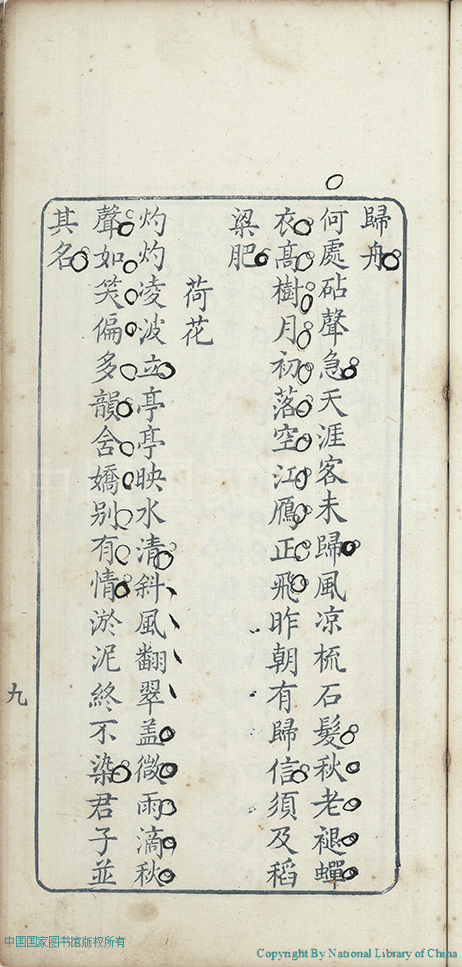 歸舟
何處砧聲急天涯客未歸風凉梳石髮秋老褪蟬
衣高樹月初落空江鴈正飛昨朝有歸信須及稻
粱肥
荷花
灼灼凌波立亭亭映水清斜風翻翠盖微雨滴秋
聲如笑偏多韻含嬌別有情淤泥終不染君子並
其名
九
中国国家图书馆版权所有
Copyright By National Library of China